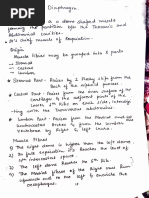 Diaphragm
is a dome shaped muscle
forming the partition for the Thoracic and
abdominal cavities.
It's chief muscle of Respiration.
Origin
Muscle fibres may be grouped into 3 parts
→ Sternal
→ Costal
→ Lumbar
* Sternal Part - Raises by 2 fleshy slips from the
Back of the xiphoid process
* Costal Part - Raises from the Inner surface of the
cartilages & the adjacent parts of the
lower 6th Ribs on each side, interdigi
-ting with the transversus abdominis
* Lumbar Part - Raises from the Medial and
lumbosacral arches & from the lumbar
vertebrae by Right & left crura.
Muscle fibres
1) The right dome is higher than the left dome.
2) In full expiration It reaches the level of
4th intercostal space.
3) The left dome reaches to 5th Rib.
4) The Medial fibres of the Right crus run
upwards and to the left & encircle the
oesophagus.